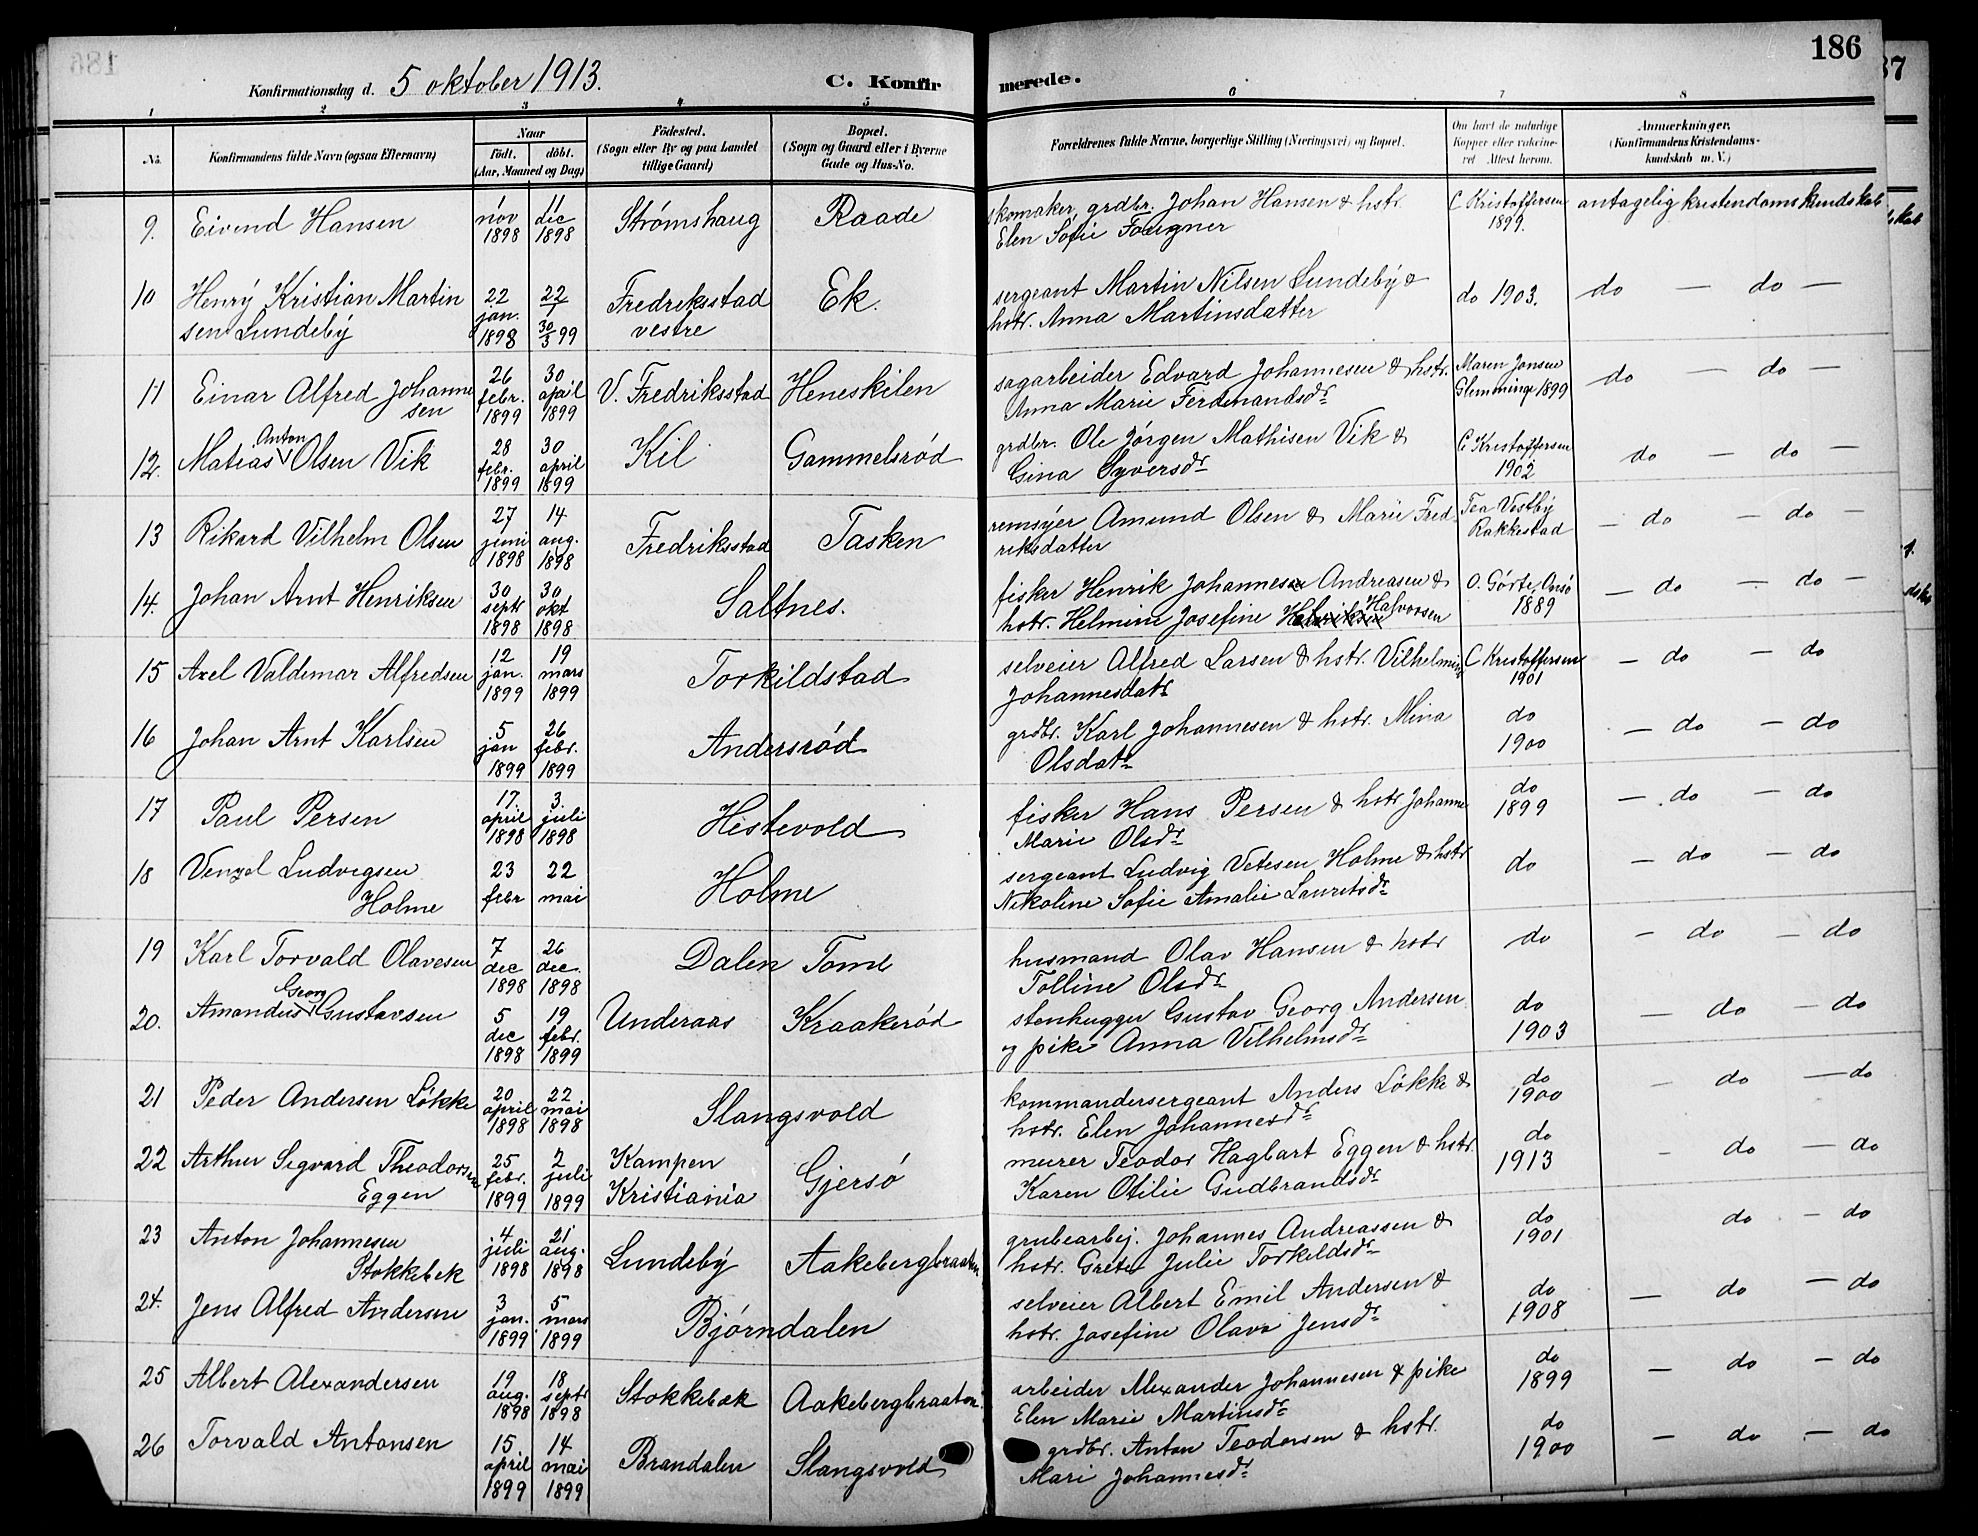 186
Konfirmationsdag d. 5 oktober 1913. C. Konfirmerede.
1 2 3 4 5 6 7 8
No.
Konfirmandens fulde Navn (ogsaa Efternavn)
Naar
Födt. döbt.
(Aar, Maaned og Dag)
Födested.
(Sogn eller By og paa Landet
tillige Gaard)
Bopæl.
(Sogn og Gaard eller i Byerne
Gade og Hus-No.
Forældrenes fulde Navne, borgerlige Stilling (Næringsvei) og Bopæl.
Om havt de naturlige
Kopper eller vakcine-
ret Attest herom.
Anmærkninger.
(Konfirmandens Kristendoms-
kundskab m. V.)
9. Eivend Hansen 1 nov 1898 11 dec 1898 Strømshaug Raade skomaker, grdbr. Johan Hansen & hstr. C Kristoffersen antagelig kristendomskundskab
Elen Sofie 1899.
10 Henry Kristian Martin 22 jan. 1898 Fredriksstad Ek. sergeant Martin Nilsen Lundeby & do 1903. do — do —
sen Lundeby 30/3 99 vestre hstr. Anna Martinsdatter
11 Einar Alfred Johanne 26 febr. 1899 30 april 1899 V. Fredriksstad Heneskilen sagarbeider Edvard Johannesen & hstr. Maren Jonsen do — do —
sen Anna Marie Ferdinandsdr Glemminge 1899
12. Matias Anton Olsen Vik 28 febr. 1899 30 april 1899 Kil Gammelsrød grdbr. Ole Jørgen Mathisen Vik & C Kristoffersen do — do —
Gina Syversdr 1902
13 Rikard Vilhelm Olsen 27 juni 1898 14 aug. 1898 Fredriksstad Tasken remsyer Amund Olsen & Marie Fred- Tea Vestby — do — do —
riksdatter Rakkestad
14. Johan Arnt Henriksen 30 septr 1898 30 okt 1898 Saltnes. fisker Henrik Johannesen Andreasen & O. Gørte, Onsø — do — do —
hstr. Helmine Josefine Halvorsen 1889
15 Axel Valdemar Alfredsen 12 jan. 1899 19 mars 1899 Torkildstad selveier Alfred Larsen & hstr. Vilhelmine C Kristoffersen — do — do
Johannesdatr 1901
16 Johan Arnt Karlsen 5 jan 1899 26 febr. 1899 Andersrød grdbr. Karl Johannesen & hstr. Mina do — do — do
Olsdatr 1900
17 Paul Persen 17 april 1898 3. juli 1898 Histevold fisker Hans Persen & hstr Johanne do 1899 — do — do
Marie Olsdr
18 Venzel Ludvigsen 23 febr 22 mai Holme sergeant Ludvig Vetesen Holme & hstr do — do — do
Holme Nikoline Sofie Amalie Lauritsdr
19 Karl Torvald Olavesen 7 dec 1898 26 dec. 1898 Dalen Tomb husmand Olav Hansen & hstr do — do — do
Tolline Olsdr
20. Amandus Georg Gustavsen 5 dec 1898 19 febr. 1899 Underaas Kraakerød stenhugger Gustav Georg Andersen do — do — do
og pike Anna Vilhelmsdr 1903
21 Peder Andersen Løkke 20 april 1898 22 mai 1898 Slangsvold kommandersergeant Anders Løkke & do 1900 — do — do
hstr. Elen Johannesdr
22 Arthur Sigvard Theodorsen 25 febr. 1899 2 juli 1899 Kampen Gjersø murer Teodor Hagbart Eggen & hstr. do — do — do
Eggen Kristiania Karen Otilie Gudbrandsdr 1913
23 Anton Johannesen 4 juli 1898 21 aug. 1898 Lundeby Aakebergbraaten grubearbej. Johannes Andreassen & do 1901 do — do
Stokkebek hstr. Grete Julie Torkildsdr
24. Jens Alfred Andersen 3 jan. 1899 5 mars 1899 Bjørndalen selveier Albert Emil Andersen & do — do — do
hstr. Josefine Olava Jensdr 1908
25 Albert Alexandersen 19 aug. 1898 18 septr 1898 Stokkebæk Aakebergbraaten arbeider Alexander Johannesen & pike do 1899 — do — do
Elen Marie Martinsdr
26 Torvald Antonsen 15 april 1899 14 mai 1899 Brandalen Slangsvold grdbr. Anton Teodorsen & hstr. do 1900 — do — do
Mari Johannesdr